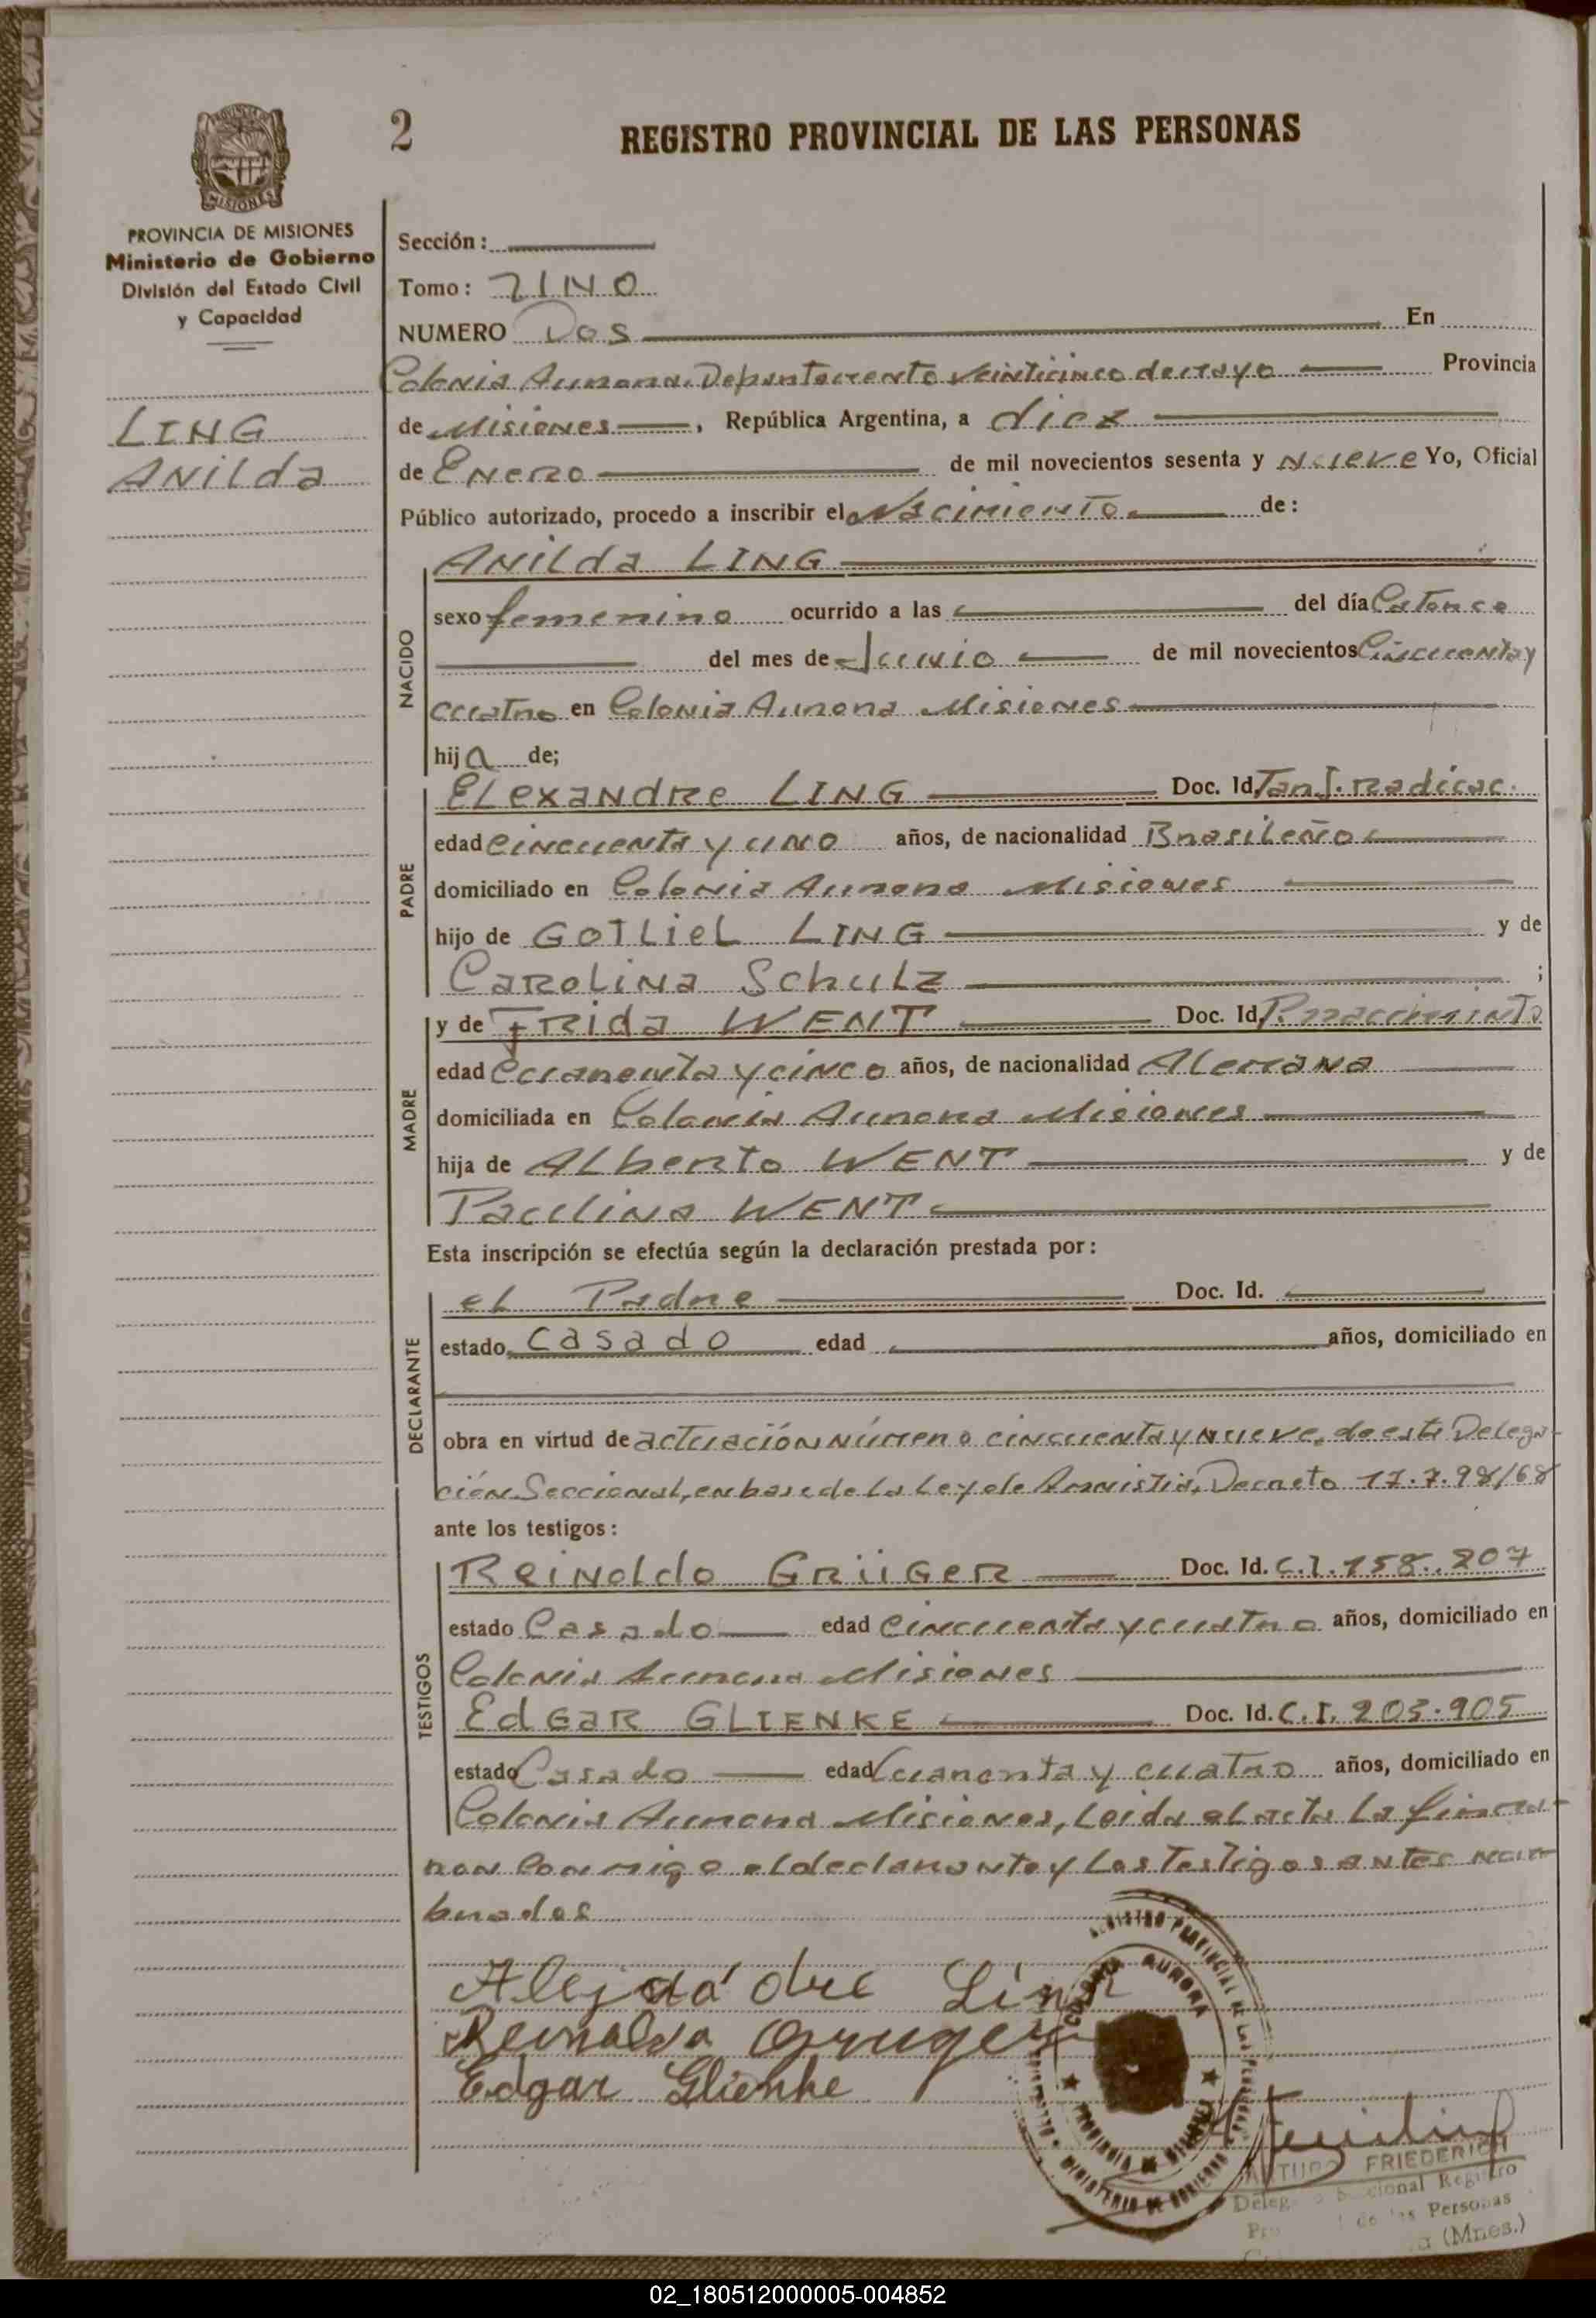 2
REGISTRO PROVINCIAL DE LAS PERSONAS
PROVINCIA DE MISIONES
Ministerio de Gobierno
División del Estado Civil
y Capacidad
LING
ANILda
Sección:
Tomo: UNO
NUMERO Dos En
Colonia Aurora. Departamento veinticinco de mayo Provincia
de Misiones, República Argentina, a diez
de Enero de mil novecientos sesenta y nueve Yo, Oficial
Público autorizado, procedo a inscribir el Nacimiento de:
NACIDO
ANILda LING
sexo femenino ocurrido a las del día Catorce
del mes de Junio de mil novecientos Cincuenta y
cuatro en Colonia Aurora Misiones
hija de;
PADRE
ELEXANdRE LING Doc. Id. Tarj. Radicac.
edad cincuenta y uno años, de nacionalidad Brasileño
domiciliado en Colonia Aurora Misiones
hijo de GOTLieL LING y de
CAROLINA Schulz ;
MADRE
y de FRida WENT Doc. Id.
edad cuarenta y cinco años, de nacionalidad ALemana
domiciliada en Colonia Aurora Misiones
hija de ALberto WENT y de
Paulina WENT
Esta inscripción se efectúa según la declaración prestada por:
DECLARANTE
eL Padre Doc. Id.
estado casado edad años, domiciliado en
obra en virtud de actuación número cincuenta y nueve, de esta Delega-
ción Seccional, en base de la Ley de Amnistia, Decreto 17.7.98/68
ante los testigos:
TESTIGOS
Reinoldo GRüGER Doc. Id. C.I. 158.807
estado Casado edad cincuenta y cuatro años, domiciliado en
Colonia Aurora Misiones
EdGAR GLIENKE Doc. Id. C.I. 203.905
estado Casado edad Cuarenta y cuatro años, domiciliado en
Colonia Aurora Misiones, Leida el acta la firma-
ron conmigo el declarante y los testigos antes nom-
brados
Alejdádre Ling
Reinaldo Gruger
Edgar Glienke
REGISTRO PROVINCIAL DE LAS PERSONAS
COLONIA AURORA
PROVINCIA DE MISIONES
MINISTERIO DE GOBIERNO
ARTURO FRIEDERICH
Delegado Seccional Registro
de las Personas
(Mnes.)
02_180512000005-004852